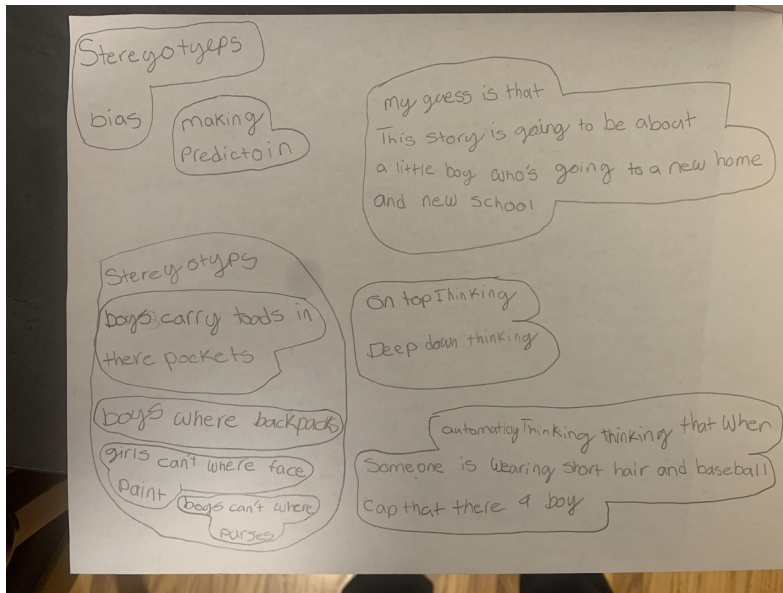 Stereyotyeps
bias
making
Predictoin
my guess is that
This story is going to be about
a little boy who's going to a new home
and new school
Stereyotyps
boys carry toads in
there pockets
boys where backpacks
girls can't where face
paint
boys can't where
purses
On top Thinking
Deep down thinking
automaticy Thinking thinking that When
Someone is wearing short hair and baseball
cap that there a boy